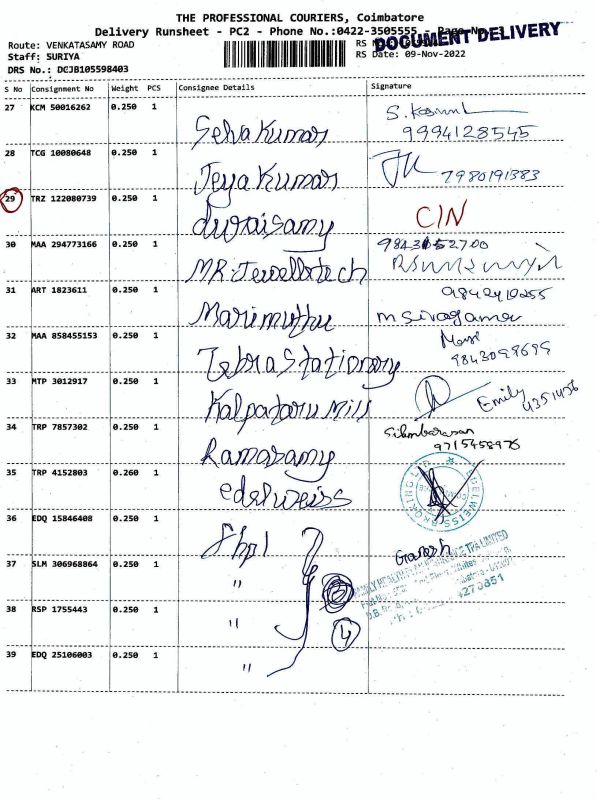 THE PROFESSIONAL COURIERS, Coimbatore
Delivery Runsheet - PC2 - Phone No.:0422-3505555 Page No.
DOCUMENT DELIVERY
Route: VENKATASAMY ROAD
Staff: SURIYA RS Date: 09-Nov-2022
DRS No.: DCJB105598403
S No Consignment No Weight PCS Consignee Details Signature
27 KCM 50016262 0.250 1 Selva Kumar 9994128545
28 TCG 10080648 0.250 1 Jeya Kumar 7980191383
29 TRZ 122080739 0.250 1 duraisamy CIN
30 MAA 294773166 0.250 1 MR.Jewellrtech
31 ART 1823611 0.250 1 Marimuthu 9842410255
m sivagamer
32 MAA 858455153 0.250 1 Tebra Stationary
33 MTP 3012917 0.250 1 Kalpataru Mill Emily 4351456
34 TRP 7857302 0.250 1 Ramasamy Silambarasan
9715458976
35 TRP 4152803 0.260 1 edelweiss
36 EDQ 15846408 0.250 1 Fhpl Ganesh
37 SLM 306968864 0.250 1 "
38 RSP 1755443 0.250 1 " 4
39 EDQ 25106003 0.250 1 "